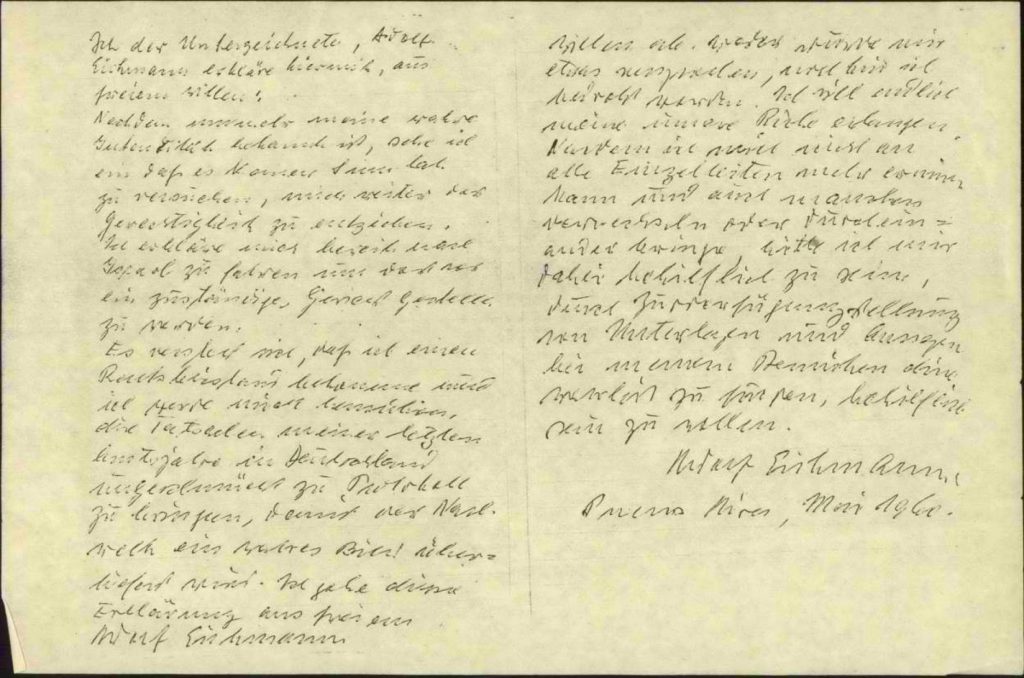 Ich der Unterzeichnete, Adolf
Eichmann erkläre hiermit, aus
freiem Willen:
Nachdem nunmehr meine wahre
Identität bekannt ist, sehe ich
ein daß es keinen Sinn hat
zu versuchen, mich weiter der
Gerechtigkeit zu entziehen.
Ich erkläre mich bereit nach
Israel zu fahren um dort vor
ein zuständige, Gericht gestellt
zu werden.
Es versteht sich, daß ich einen
Rechtsbeistand bekomme und
ich werde mich bemühen,
die Tatsachen meiner letzten
Amtsjahre in Deutschland
ungeschminkt zu Protokoll
zu bringen, damit der Nach-
welt ein wahres Bild über=
liefert wird. Ich gebe diese
Erklärung aus freiem
Adolf Eichmann
Willen ab. Weder wurde mir
etwas versprochen, noch bin ich
bedroht worden. Ich will endlich
meine innere Ruhe erlangen.
Nachdem ich mich nicht an
alle Einzelheiten mehr erinnern
kann und auch manches
verwechseln oder durchein=
ander bringe, bitte ich mir
dabei behilflich zu sein,
durch Zurverfügungstellung
von Unterlagen und Aussagen
bei meinem Bemühen die
Wahrheit zu suchen, behilflich
sein zu wollen.
Adolf Eichmann.
Buenos Aires, Mai 1960.